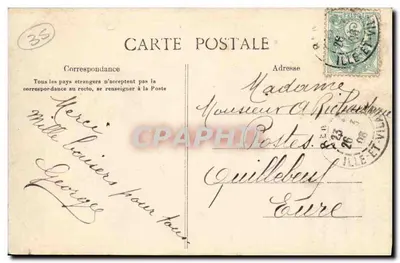 35
CARTE POSTALE
Correspondance
Tous les pays étrangers n'acceptent pas la
correspondance au recto, se renseigner à la Poste
Merci
Mille baisers pour tous
Georges
Adresse
Madame
Monsieur A
Postes
Quillebeuf
Eure
ILLE-ET-VILAINE
23
26
08
ILLE-ET-VILAINE